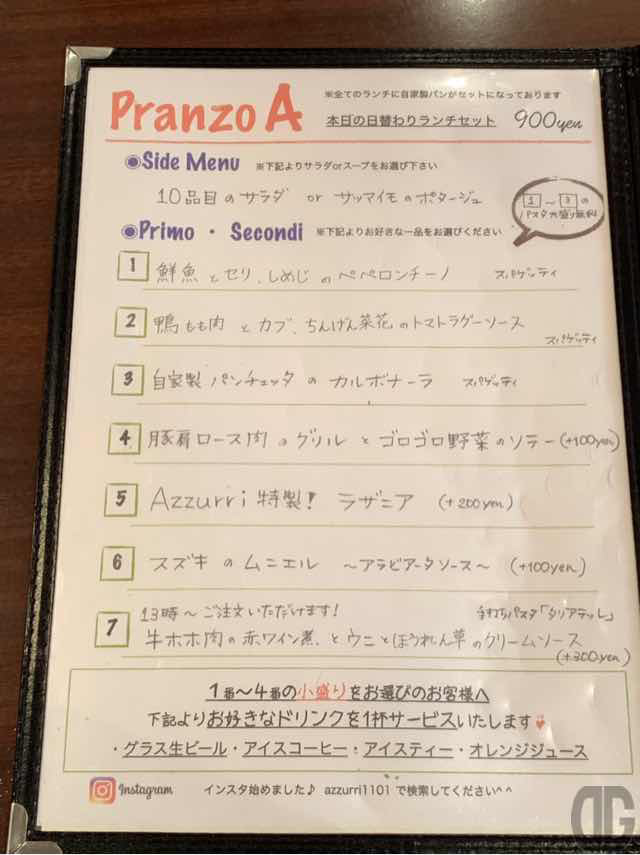 Pranzo A
※全てのランチに自家製パンがセットになっております
本日の日替わりランチセット 900yen
◉Side Menu ※下記よりサラダorスープをお選び下さい
10品目のサラダ or サツマイモのポタージュ
1～3の
パスタ大盛り無料
◉Primo・Secondi ※下記よりお好きな一品をお選びください
1 鮮魚とセリ、しめじのペペロンチーノ スパゲッティ
2 鴨もも肉とカブ、ちんげん菜花のトマトラグーソース
スパゲッティ
3 自家製パンチェッタのカルボナーラ スパゲッティ
4 豚肩ロース肉のグリルとゴロゴロ野菜のソテー(+100yen)
5 Azzurri特製! ラザニア (+200yen)
6 スズキのムニエル ～アラビアータソース～ (+100yen)
13時～ご注文いただけます! 手打ちパスタ「タリアテッレ」
7 牛ホホ肉の赤ワイン煮、とウニとほうれん草のクリームソース
(+300yen)
1番～4番の小盛りをお選びのお客様へ
下記よりお好きなドリンクを1杯サービスいたします
・グラス生ビール・アイスコーヒー・アイスティー・オレンジジュース
Instagram インスタ始めました♪ azzurri1101 で検索してください^ ^
DG